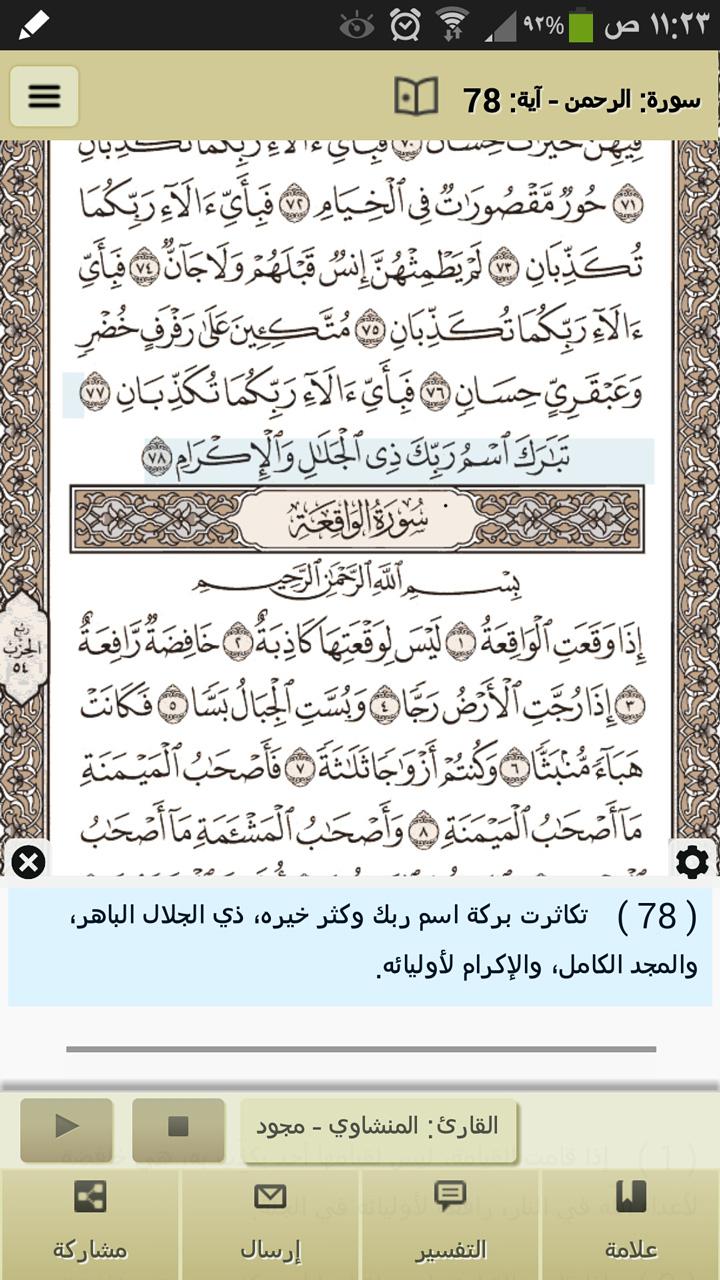 ١١:٢٣ ص ٩٢%
سورة: الرحمن - آية: 78
فِيهِنَّ خَيْرَٰتٌ حِسَانٌ ٧٠ فَبِأَيِّ ءَالَآءِ رَبِّكُمَا تُكَذِّبَانِ
٧١ حُورٌ مَّقْصُورَٰتٌ فِى ٱلْخِيَامِ ٧٢ فَبِأَيِّ ءَالَآءِ رَبِّكُمَا
تُكَذِّبَانِ ٧٣ لَمْ يَطْمِثْهُنَّ إِنسٌ قَبْلَهُمْ وَلَا جَآنٌّ ٧٤ فَبِأَيِّ
ءَالَآءِ رَبِّكُمَا تُكَذِّبَانِ ٧٥ مُتَّكِـِٔينَ عَلَىٰ رَفْرَفٍ خُضْرٍ
وَعَبْقَرِيٍّ حِسَانٍ ٧٦ فَبِأَيِّ ءَالَآءِ رَبِّكُمَا تُكَذِّبَانِ ٧٧
تَبَٰرَكَ ٱسْمُ رَبِّكَ ذِى ٱلْجَلَٰلِ وَٱلْإِكْرَامِ ٧٨
سُورَةُ الوَاقِعَةِ
بِسْمِ ٱللَّهِ ٱلرَّحْمَٰنِ ٱلرَّحِيمِ
إِذَا وَقَعَتِ ٱلْوَاقِعَةُ ١ لَيْسَ لِوَقْعَتِهَا كَاذِبَةٌ ٢ خَافِضَةٌ رَّافِعَةٌ
٣ إِذَا رُجَّتِ ٱلْأَرْضُ رَجًّا ٤ وَبُسَّتِ ٱلْجِبَالُ بَسًّا ٥ فَكَانَتْ
هَبَآءً مُّنۢبَثًّا ٦ وَكُنتُمْ أَزْوَٰجًا ثَلَٰثَةً ٧ فَأَصْحَٰبُ ٱلْمَيْمَنَةِ
مَآ أَصْحَٰبُ ٱلْمَيْمَنَةِ ٨ وَأَصْحَٰبُ ٱلْمَشْـَٔمَةِ مَآ أَصْحَٰبُ
ربع
الحزب
٥٤
(78) تكاثرت بركة اسم ربك وكثر خيره، ذي الجلال الباهر،
والمجد الكامل، والإكرام لأوليائه.
القارئ: المنشاوي - مجود
علامة
التفسير
إرسال
مشاركة